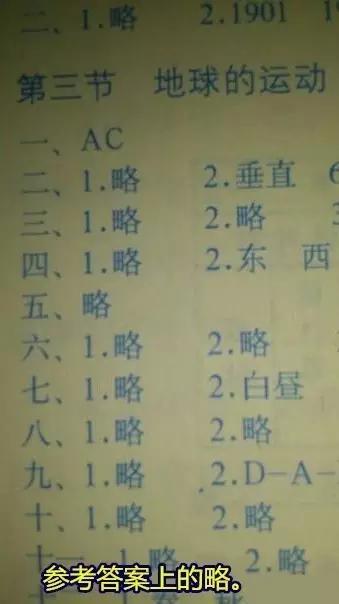 二、1.略 2.1901
第三节 地球的运动
一、AC
二、1.略 2.垂直
三、1.略 2.略
四、1.略 2.东 西
五、略
六、1.略 2.略
七、1.略 2.白昼
八、1.略 2.略
九、1.略 2.D-A-
十、1.略 2.略
十一 1.略 2.略
参考答案上的略。